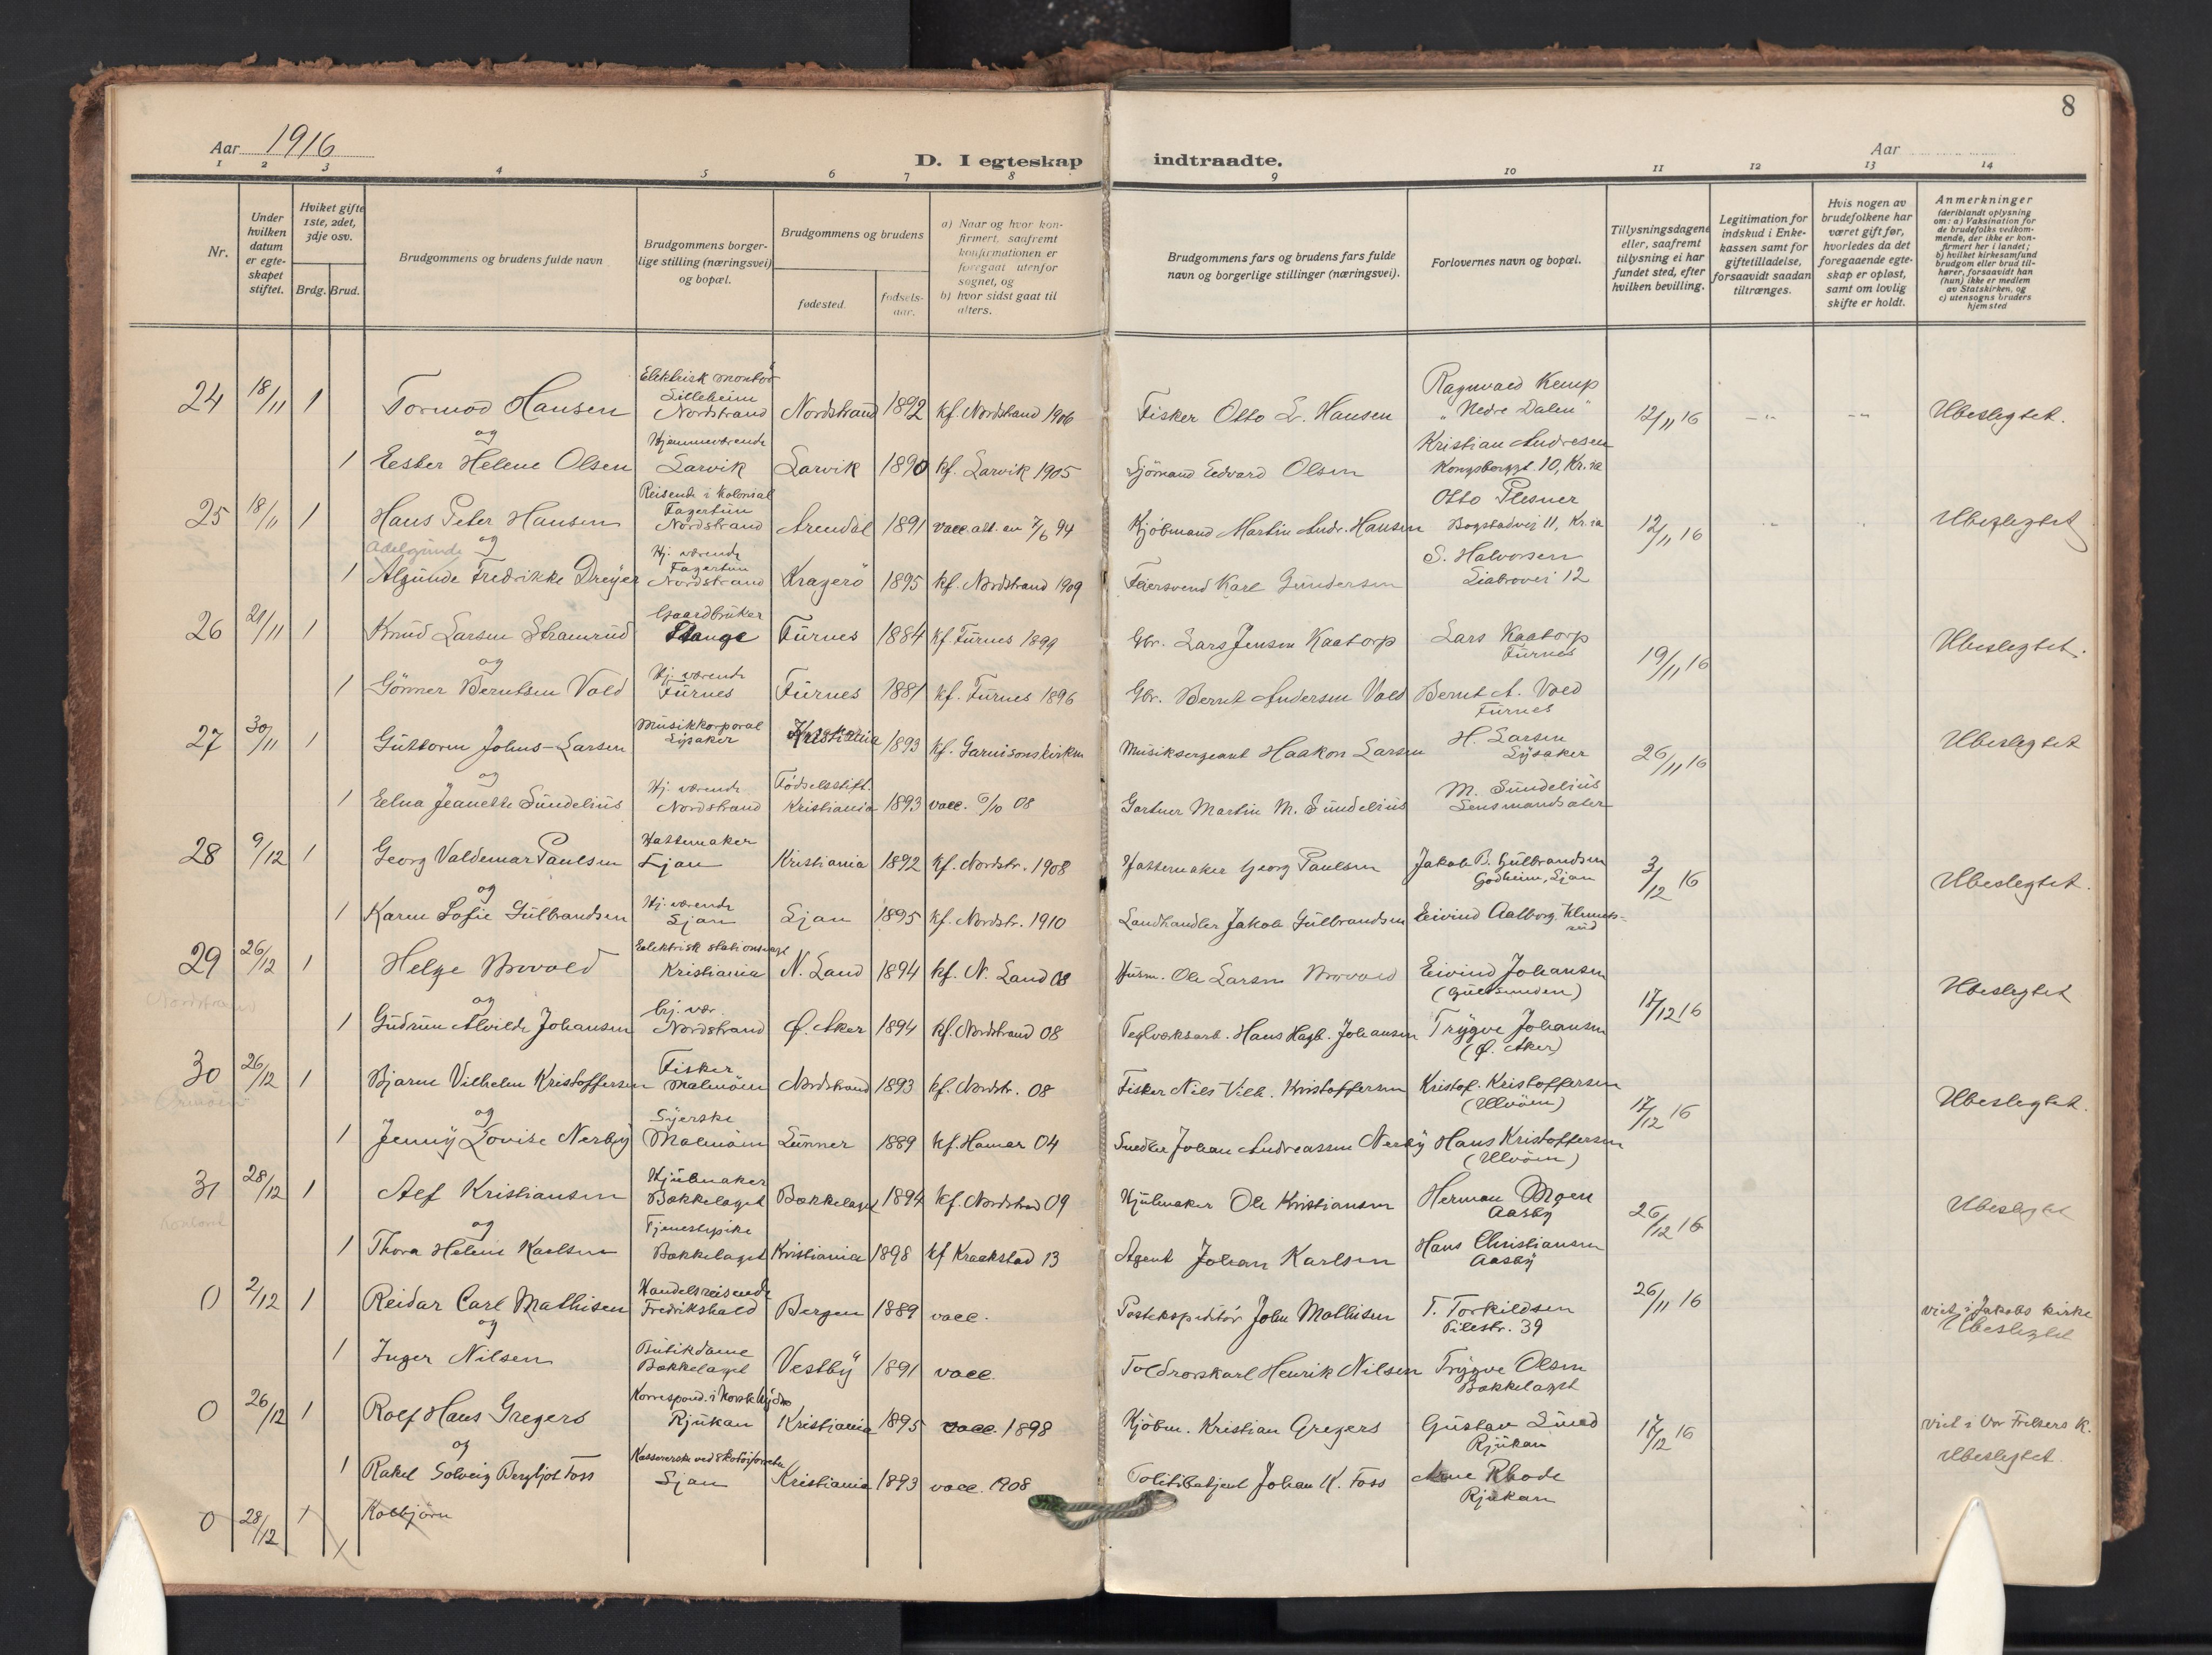 8
Aar 1916
D. I egteskap indtraadte.
Aar
1 2 3 4 5 6 7 8 9 10 11 12 13 14
Nr.
Under hvilken datum er egteskapet stiftet.
Hviket gifte 1ste, 2det, 3dje osv.
Brdg. Brud.
Brudgommens og brudens fulde navn
Brudgommens borgerlige stilling (næringsvei) og bopæl.
Brudgommens og brudens
fødested.
fødselsaar.
a) Naar og hvor konfirmert, saafremt konfirmationen er foregaat utenfor sognet, og
b) hvor sidst gaat til alters.
Brudgommens fars og brudens fars fulde navn og borgerlige stillinger (næringsvei).
Forlovernes navn og bopæl.
Tillysningsdagene eller, saafremt tillysning ei har fundet sted, efter hvilken bevilling.
Legitimation for indskud i Enkekassen samt for giftetilladelse, forsaavidt saadan tiltrænges.
Hvis nogen av brudefolkene har været gift før, hvorledes da det foregaaende egteskap er opløst, samt om lovlig skifte er holdt.
Anmerkninger (deriblandt oplysning om: a) Vaksination for de brudefolks vedkommende, der ikke er konfirmert her i landet; b) hvilket kirkesamfund brudgom eller brud tilhører, forsaavidt han (hun) ikke er medlem av Statskirken, og c) utensogns bruders hjemsted
24 18/11 1 Tormod Hansen Elektrisk montör Lilleheim Nordstrand Nordstrand 1892 kf. Nordstrand 1906 Fisker Otto L. Hansen Ragnvald Kemp "Nedre Dalen" 12/11 16 Ubeslegtet.
og
1 Ester Helene Olsen Hjemmeværende Larvik Larvik 1890 kf. Larvik 1905 Sjömand Edvard Olsen Kristian Andresen Kongsberggt. 10, Kr.ia
25 18/11 1 Hans Peter Hansen Reisende i kolonial Fagertun Nordstrand Arendal 1891 vacc. att. av 7/6 94 Kjöbmand Martin Andr. Hansen Otto Plesner Bogstadvei 11, Kr.ia 12/11 16 Ubeslegtet
Adelgunde og
1 Algunde Fredrikke Dreyer Hj. værende Fagertun Nordstrand Kragerö 1895 kf. Nordstrand 1909 Feiersvend Karl Gundersen S. Halvorsen Liabrovei 12
26 21/11 1 Knud Larsen Stramrud Gaardbruker Stange Furnes 1884 kf. Furnes 1899 Gbr. Lars Jensen Kaatorp Lars Kaatorp Furnes 19/11 16 Ubeslegtet.
og
1 Gönner Berntsen Vold Hj. værende Furnes Furnes 1881 kf. Furnes 1896 Gbr. Bernt Andersen Vold Bernt A. Vold Furnes
27 30/11 1 Guttorm Johns-Larsen Musikkorporal Lysaker Kristiania 1893 kf. Garnisonskirken Musiksergeant Haakon Larsen H. Larsen Lysaker 26/11 16 Ubeslegtet
og
1 Edna Jeanette Sundelius Hj. værende Nordstrand Födselsstift. Kristiania 1893 vacc. 6/10 08 Gartner Martin M. Sundelius M. Sundelius
28 9/12 1 Georg Valdemar Paulsen Hattemaker Ljan Kristiania 1892 kf. Nordstr. 1908 Hattemaker Georg Paulsen Jakob B. Gulbrandsen Godheim, Ljan 3/12 16 Ubeslegtet.
og
1 Karen Sofie Gulbrandsen Hj. værende Ljan Ljan 1895 kf. Nordstr. 1910 Landhandler Jakob Gulbrandsen Eivind Aalborg, Klemetsrud
29 26/12 1 Helge Morvold Elektrisk stationsvagt Kristiania N. Land 1894 kf. N. Land 08 Husm. Ole Larsen Morvold Eivind Johansen (Gullsmeden) 17/12 16 Ubeslegtet
Nordstrand
og
1 Gudrun Alvilde Johansen Hj. vær. Nordstrand Ø. Aker 1894 kf. Nordstrand 08 Teglverksarb. Hans Hagb. Johansen Trygve Johansen (Ø. Aker)
30 26/12 1 Bjarne Vilhelm Kristoffersen Fisker Malmöen Nordstrand 1893 kf. Nordstr. 08 Fisker Nils Vilh. Kristoffersen Kristof. Kristoffersen (Ulvöen) 17/12 16 Ubeslegtet.
og
1 Jenny Lovise Nerby Syerske Malmöen Lunner 1889 kf. Hamar 04 Snedker Johan Andreassen Nerby Hans Kristoffersen (Ulvöen)
31 28/12 1 Alf Kristiansen Hjulmaker Bækkelaget Bækkelaget 1894 kf. Nordstrand 09 Hjulmaker Ole Kristiansen Herman Moen Aasby 26/12 16 Ubeslegtet
og
1 Thora Helene Karlsen Tjenestepike Bækkelaget Kristiania 1898 kf Kraakstad 13 Agent Johan Karlsen Hans Christiansen Aasby
0 2/12 1 Reidar Carl Mathisen Handelsreisende Fredrikshald Bergen 1889 vacc. Postekspeditör John Mathisen T. Torkildsen Pilestr. 39 26/11 16 viet i Jakobs kirke Ubeslegtet
og
1 Inger Nilsen Butikdame Bækkelaget Vestby 1891 vacc. Toldrorskarl Henrik Nilsen Trygve Olsen Bækkelaget
0 26/12 1 Rolf Hans Gregers Korrespond. i Norsk Hydro Rjukan Kristiania 1895 vacc. 1898 Kjöbm. Kristian Gregers Gustav Lund Rjukan 17/12 16 viet i Vor Frelsers K. Ubeslegtet.
og
1 Rakel Solveig Bergljot Foss Kassererske ved Ljan Kristiania 1893 vacc. 1908 Politibetjent Johan K. Foss Arne Rhode Rjukan
0 28/12 1 Kolbjörn
1